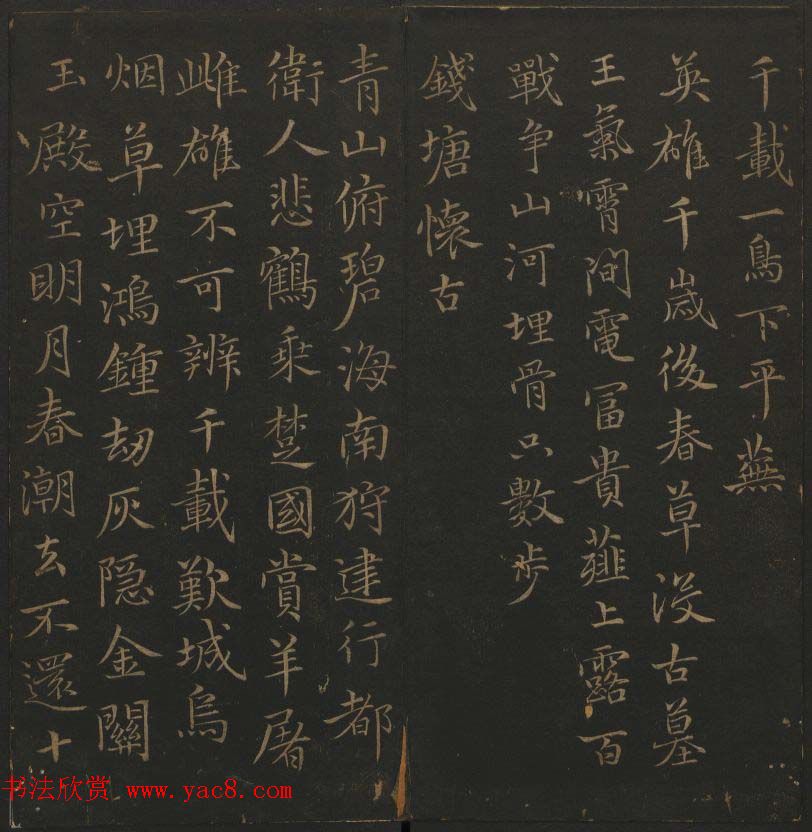 千載一鳥下平蕪
英雄千歲後春草沒古墓
王氣霄間電冨貴薤上露百
戰争山河埋骨只數步
錢塘懷古
青山俯碧海南狩建行都
衛人悲鶴乗楚國賞羊屠
雌雄不可辨千載歎城烏
烟草埋鴻鍾刼灰隠金關
玉殿空明月春潮去不還十
书法欣赏 www.yac8.com